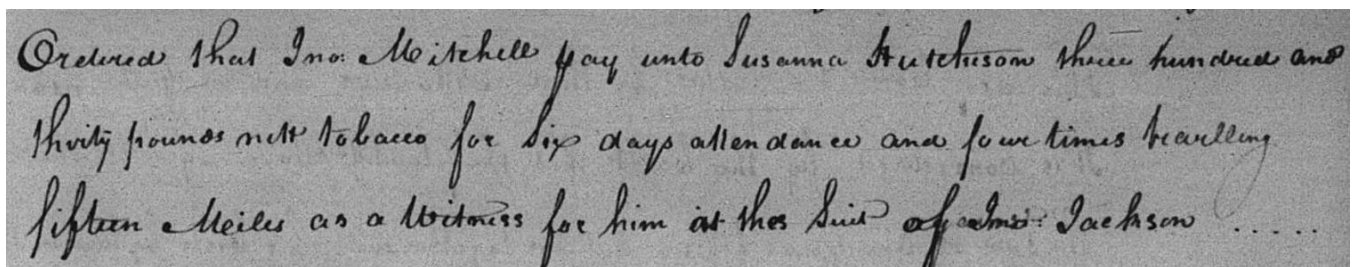 Ordered that Jno. Mitchell pay unto Susanna Hutchison three hundred and
thirty pounds nett tobacco for Six days attendance and four times travelling
fifteen Meiles as a Witness for him at the Suit of Jno. Jackson .....